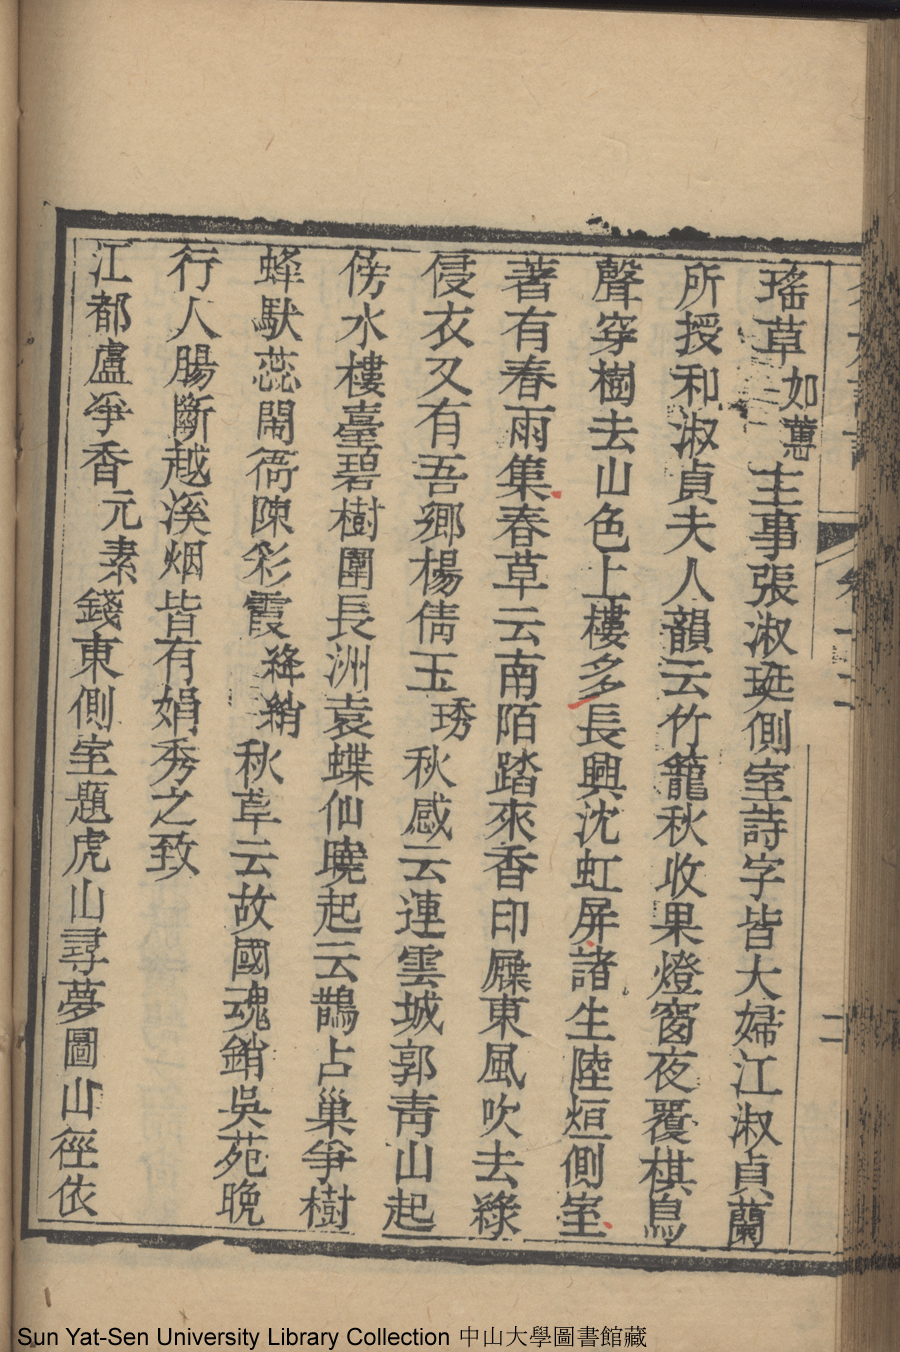 瑤草如蕙主事張淑珽側室詩字皆大婦江淑貞蘭
所授和淑貞夫人韻云竹籠秋收果燈窗夜覆棋鳥
聲穿樹去山色上樓多長興沈虹屏諸生陸烜側室
著有春雨集春草云南陌踏來香印屧東風吹去綠
侵衣又有吾鄉楊倩玉琇秋感云連雲城郭青山起
傍水樓臺碧樹圍長洲袁蝶仙曉起云鵲占巢爭樹
蜂馱蕊鬧衙陳彩霞絳綃秋草云故國魂銷吳苑晚
行人腸斷越溪烟皆有娟秀之致
江都盧爭香元素錢東側室題虎山尋夢圖山徑依
二
Sun Yat-Sen University Library Collection 中山大學圖書館藏